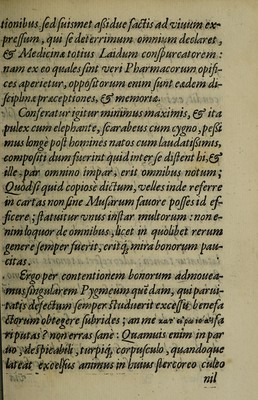 tionibus, sed suismet aßidue factis ad viuum ex-
pressum, qui se deterrimum omnium declaret,
& Medicinæ totius Laidum conspurcatorem:
nam ex eo quales sint veri Pharmacorum opifi-
ces aperietur, oppositorum enim sunt eadem di-
sciplinæ præceptiones, & memoriæ.
Conferatur igitur minimus maximis, & ita
pulex cum elephante, scarabeus cum cygno, pesśi
mus longe post homines natos cum laudatißimis,
compositi dum fuerint quid inter se distent hi, &
ille par omnino impar, erit omnibus notum;
Quòd si quid copiosè dictum, velles inde referre
in cartas non sine Musarum fauore posses id ef-
ficere; statuitur vnus instar multorum: non e-
nim loquor de omnibus, licet in quolibet rerum
genere semper fuerit, eritq, mira bonorum pau-
citas.
Ergo per contentionem bonorum admouea-
mus singularem Pygmeum quédam, qui parui-
tatis defectum semper studuerit excessu benefa
ctorum obtegere subrides; an me
riputas? non erras sane: Quamuis enim in par
uo, despicabili, turpiq, corpusculo, quandoque
lateat excelsus animus in huius stercoreo culeo
nil